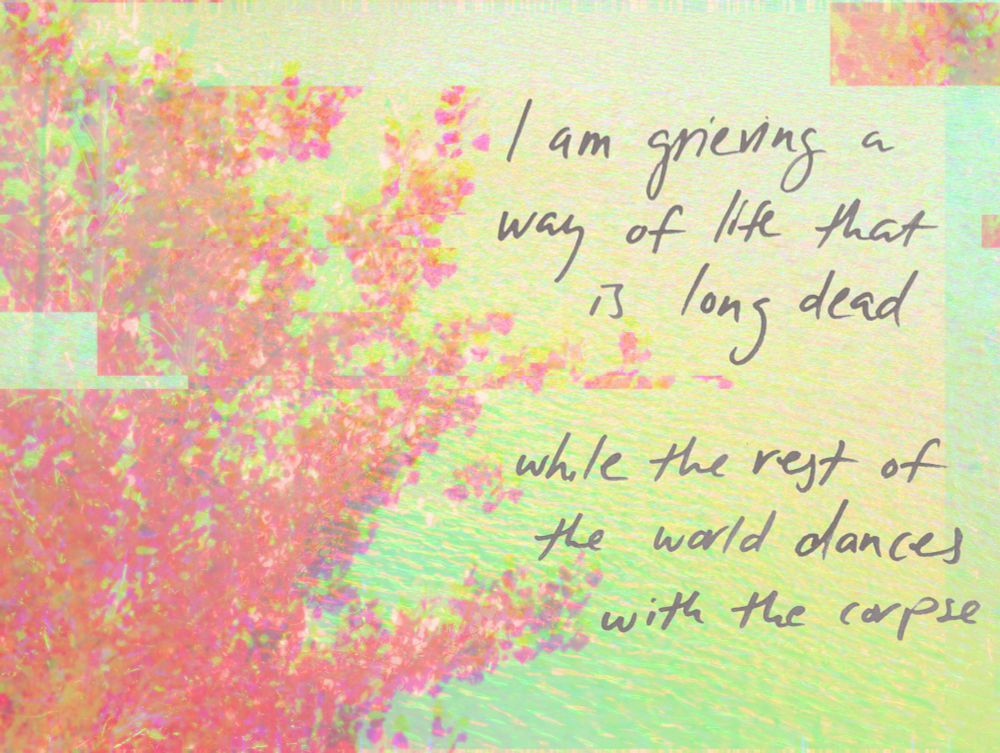 I am grieving a
way of life that
is long dead
while the rest of
the world dances
with the corpse